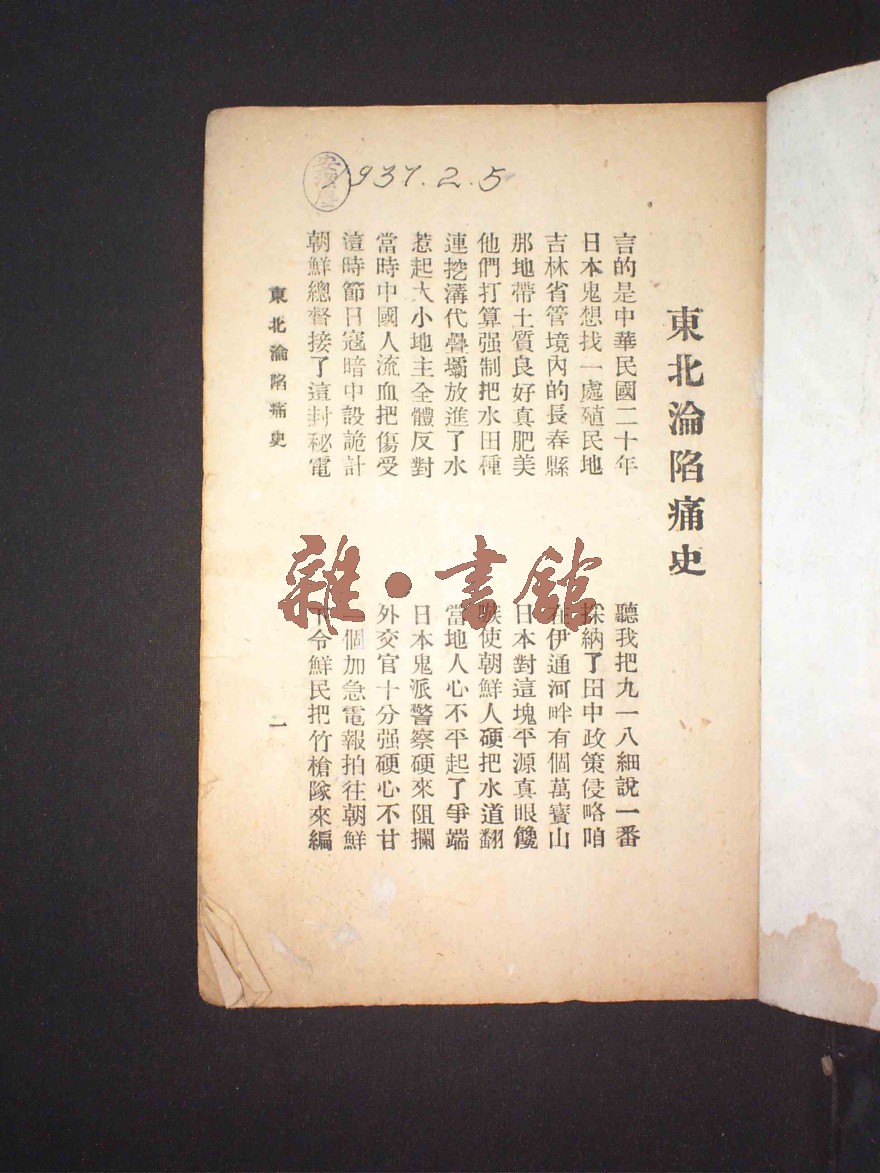 東北淪陷痛史
言的是中華民國二十年　聽我把九一八細說一番
日本鬼想找一處殖民地　採納了田中政策侵略咱
吉林省管境內的長春縣　在伊通河畔有個萬寶山
那地帶土質良好真肥美　日本對這塊平源真眼饞
他們打算强制把水田種　嗾使朝鮮人硬把水道翻
連挖溝代疊壩放進了水　當地人心不平起了爭端
惹起大小地主全體反對　日本鬼派警察硬來阻攔
當時中國人流血把傷受　外交官十分强硬心不甘
這時節日寇暗中設詭計　一個加急電報拍往朝鮮
朝鮮總督接了這封秘電　下令鮮民把竹槍隊來編
東北淪陷痛史　一
1937.2.5
雜·書館